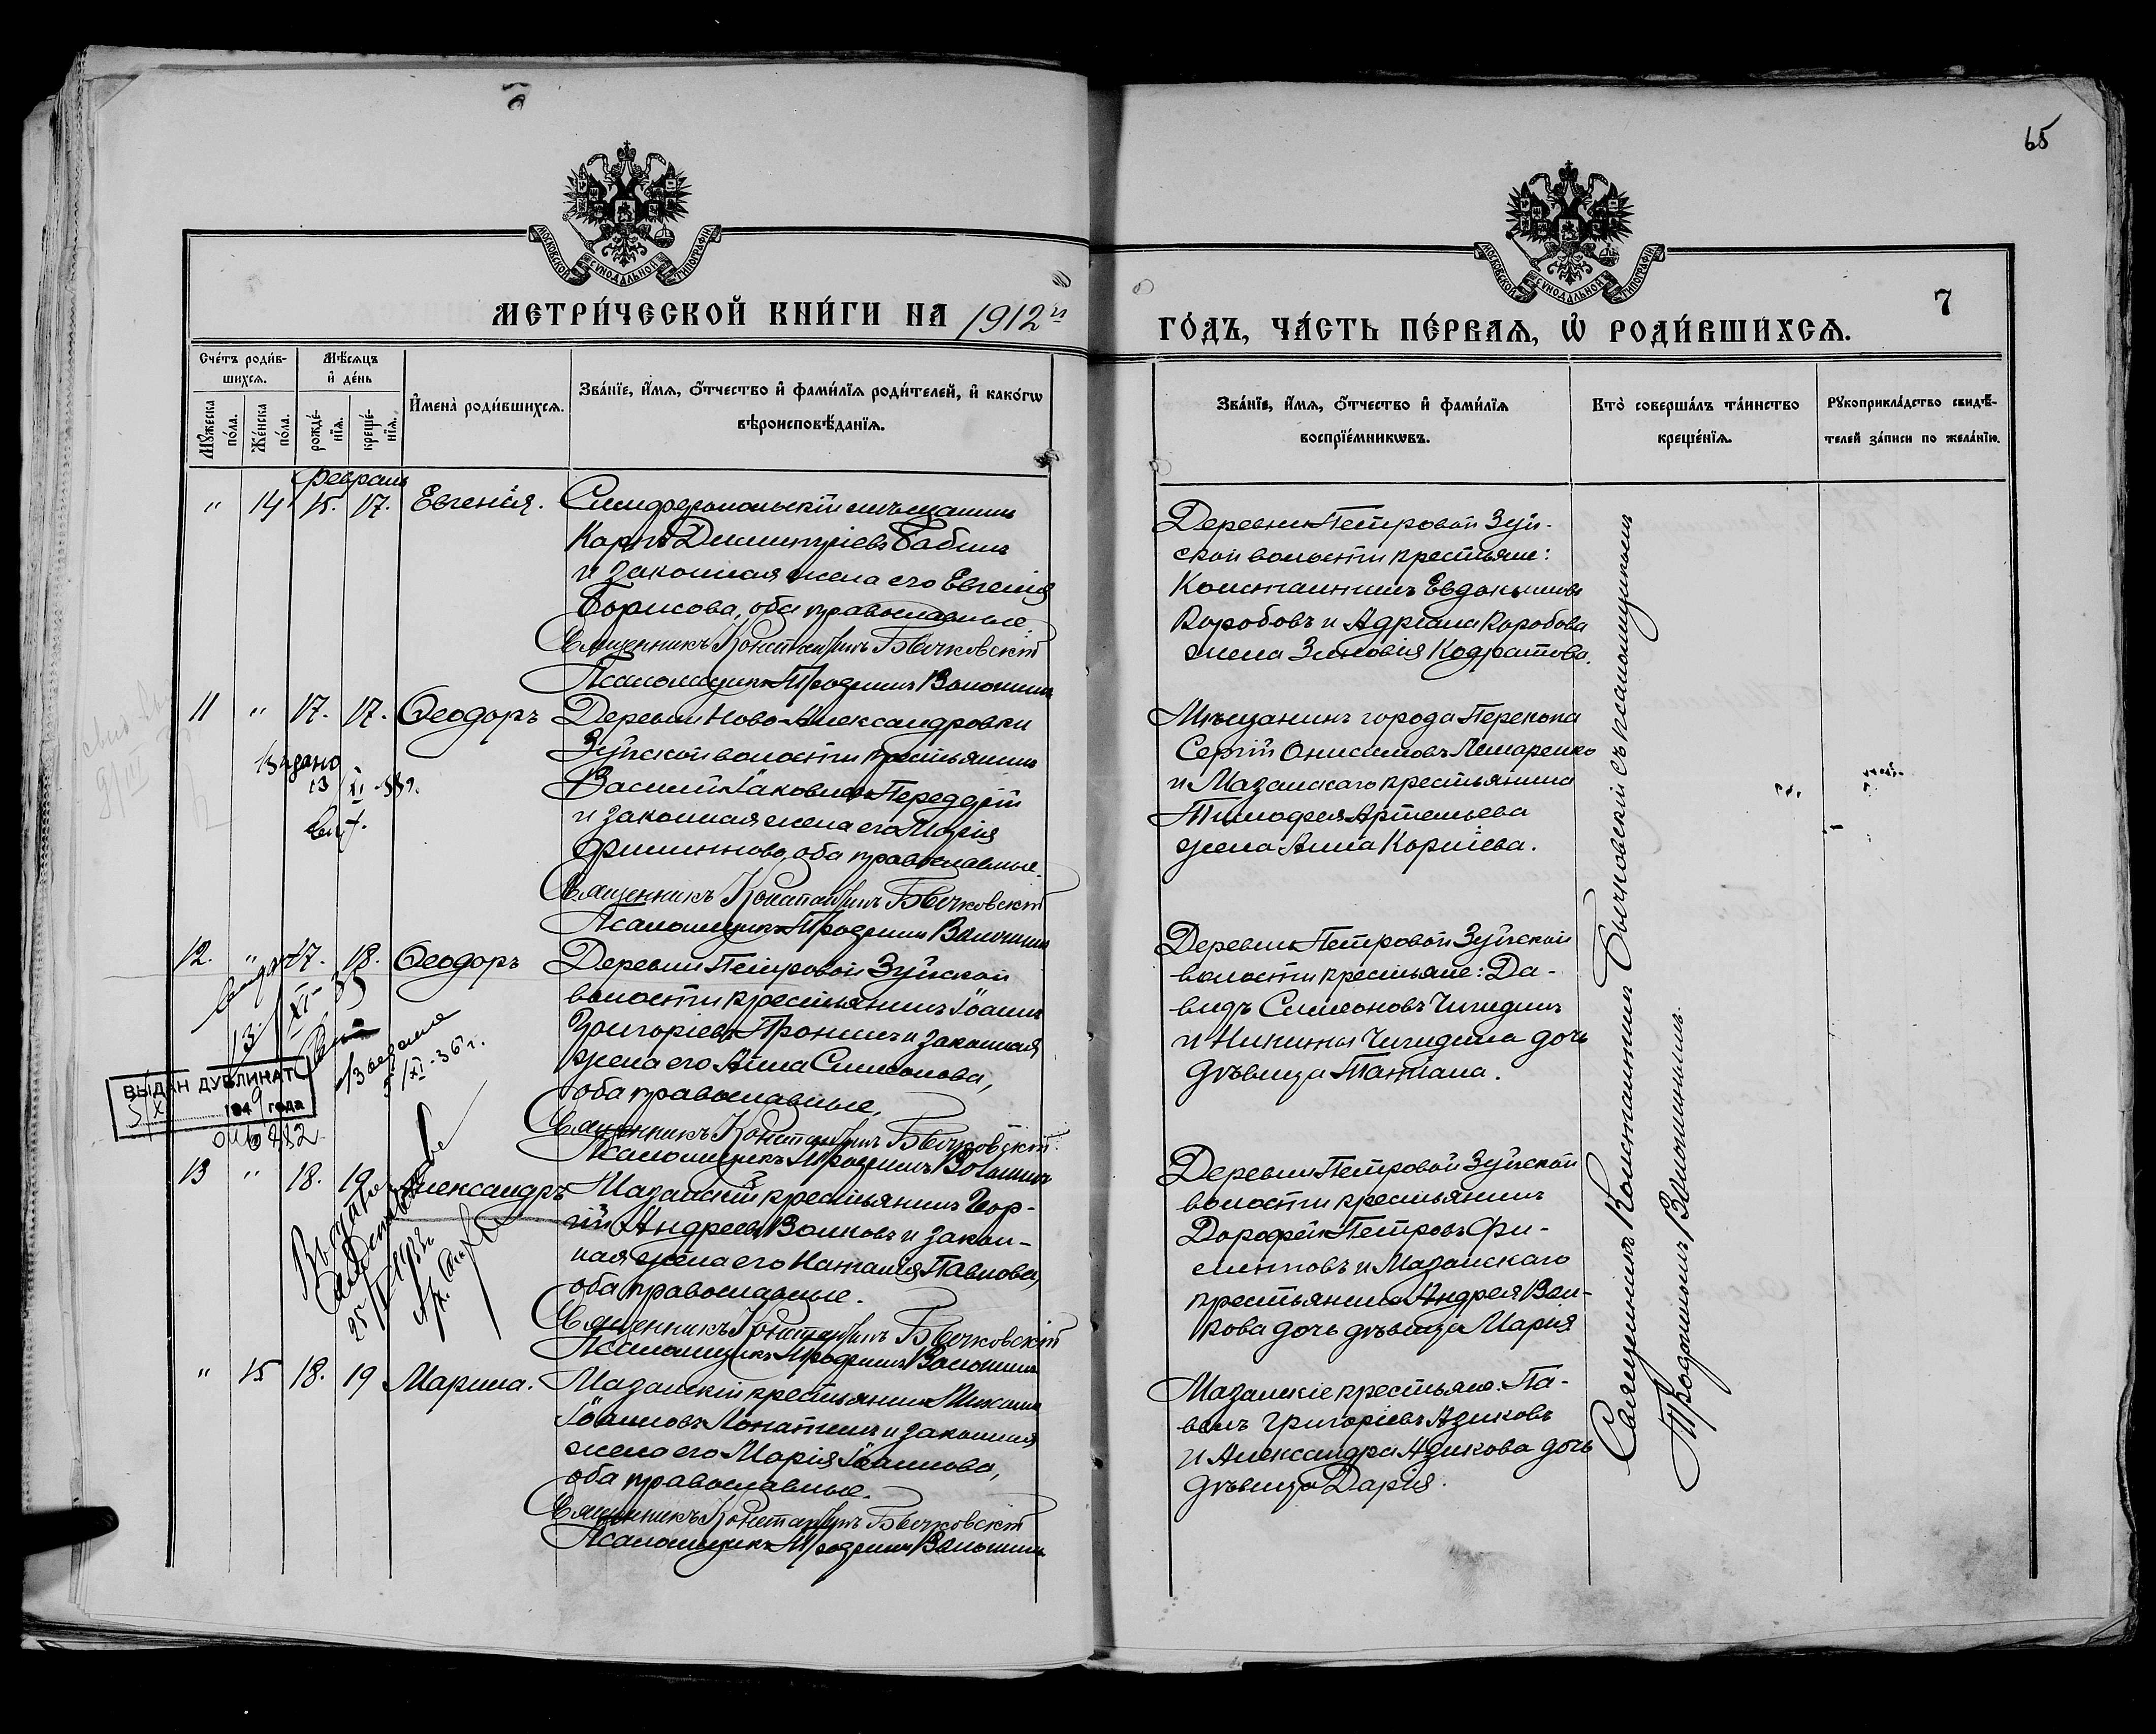 65
7
МОСКОВСКОЙ СѴНОДАЛЬНОЙ ТИПОГРАФІИ
МОСКОВСКОЙ СѴНОДАЛЬНОЙ ТИПОГРАФІИ
МЕТРИ́ЧЕСКОЙ КНИ́ГИ НА 1912й
ГО́ДЪ, ЧА́СТЬ ПЕ́РВАѦ, Ѡ҆ РОДИ́ВШИХСѦ.
Сче́тъ роди́в-
шихсѧ.
Мѣ́сѧцъ
и҆ де́нь
Мꙋ́жеска
по́ла.
Же́нска
по́ла.
рожде́-
нїѧ.
креще́-
нїѧ.
И҆мена̀ роди́вшихсѧ.
Зва́нїе, и҆́мѧ, о҆́тчество и҆ фами́лїѧ роди́телей, и҆ како́гѡ
вѣроисповѣ́данїѧ.
Зва́нїе, и҆́мѧ, о҆́тчество и҆ фами́лїѧ
воспрїе́мникѡвъ.
Кто̀ соверша́лъ та́инство
креще́нїѧ.
Рꙋкоприкла́дство свидѣ́-
телей за́писи по жела́нїю.
Февраль
" 14 15. 17. Евгенія.
Симферопольскій мѣщанинъ
Карпъ Димитріевъ Бабинъ
и законная жена его Евгенія
Борисова, оба православные.
Священникъ Константинъ Бычковскій
Псаломщикъ Трофимъ Волошинъ
Деревни Петровой Зуй-
ской волости крестьяне:
Константинъ Евдокимовъ
Коробовъ и Адріана Коробова
жена Зиновія Кодратова.
11 " 17. 17. Ѳеодоръ
Деревни Ново-Александровки
Зуйской волости крестьянинъ
Василій Іаковлевъ
и законная жена его Марія
Филиппова, оба православные.
Священникъ Константинъ Бычковскій
Псаломщикъ Трофимъ Волошинъ
Мѣщанинъ города Перекопа
Сергій Онисимовъ
и Мазанскаго крестьянина
Тимофея Артемьева
жена Анна Корніева.
Выдано
13 XI-33г.
12. " 17. 18. Ѳеодоръ
Деревни Петровой Зуйской
волости крестьянинъ Іоаннъ
Григорьевъ Пронинъ и законная
жена его Анна Симеонова,
оба православные.
Священникъ Константинъ Бычковскій
Псаломщикъ Трофимъ Волошинъ
Деревни Петровой Зуйской
волости крестьяне: Да-
видъ Симеоновъ Чигидинъ
и Никиты Чигидина дочь
дѣвица Татіана.
13/XI-33
5/XI-36г.
ВЫДАН ДУБЛИКАТ
1949 года
13 " 18. 19 Александръ
Мазанскій крестьянинъ Геор-
гій Андреевъ Волковъ и закон-
ная жена его Наталія Павлова,
оба православные.
Священникъ Константинъ Бычковскій
Псаломщикъ Трофимъ Волошинъ
Деревни Петровой Зуйской
волости крестьянинъ
Дорофей Петровъ Фи-
липповъ и Мазанскаго
крестьянина Андрея Вол-
кова дочь дѣвица Марія
" 15 18. 19 Марина.
Мазанскій крестьянинъ Михаилъ
Іоанновъ Лопатинъ и законная
жена его Марія Іоаннова,
оба православные.
Священникъ Константинъ Бычковскій
Псаломщикъ Трофимъ Волошинъ
Мазанскіе крестьяне: Па-
велъ Григорьевъ Азиковъ
и Александра Азикова дочь
дѣвица Дарія.
Священникъ Константинъ Бычковскій съ псаломщикомъ
Трофимомъ Волошинымъ.